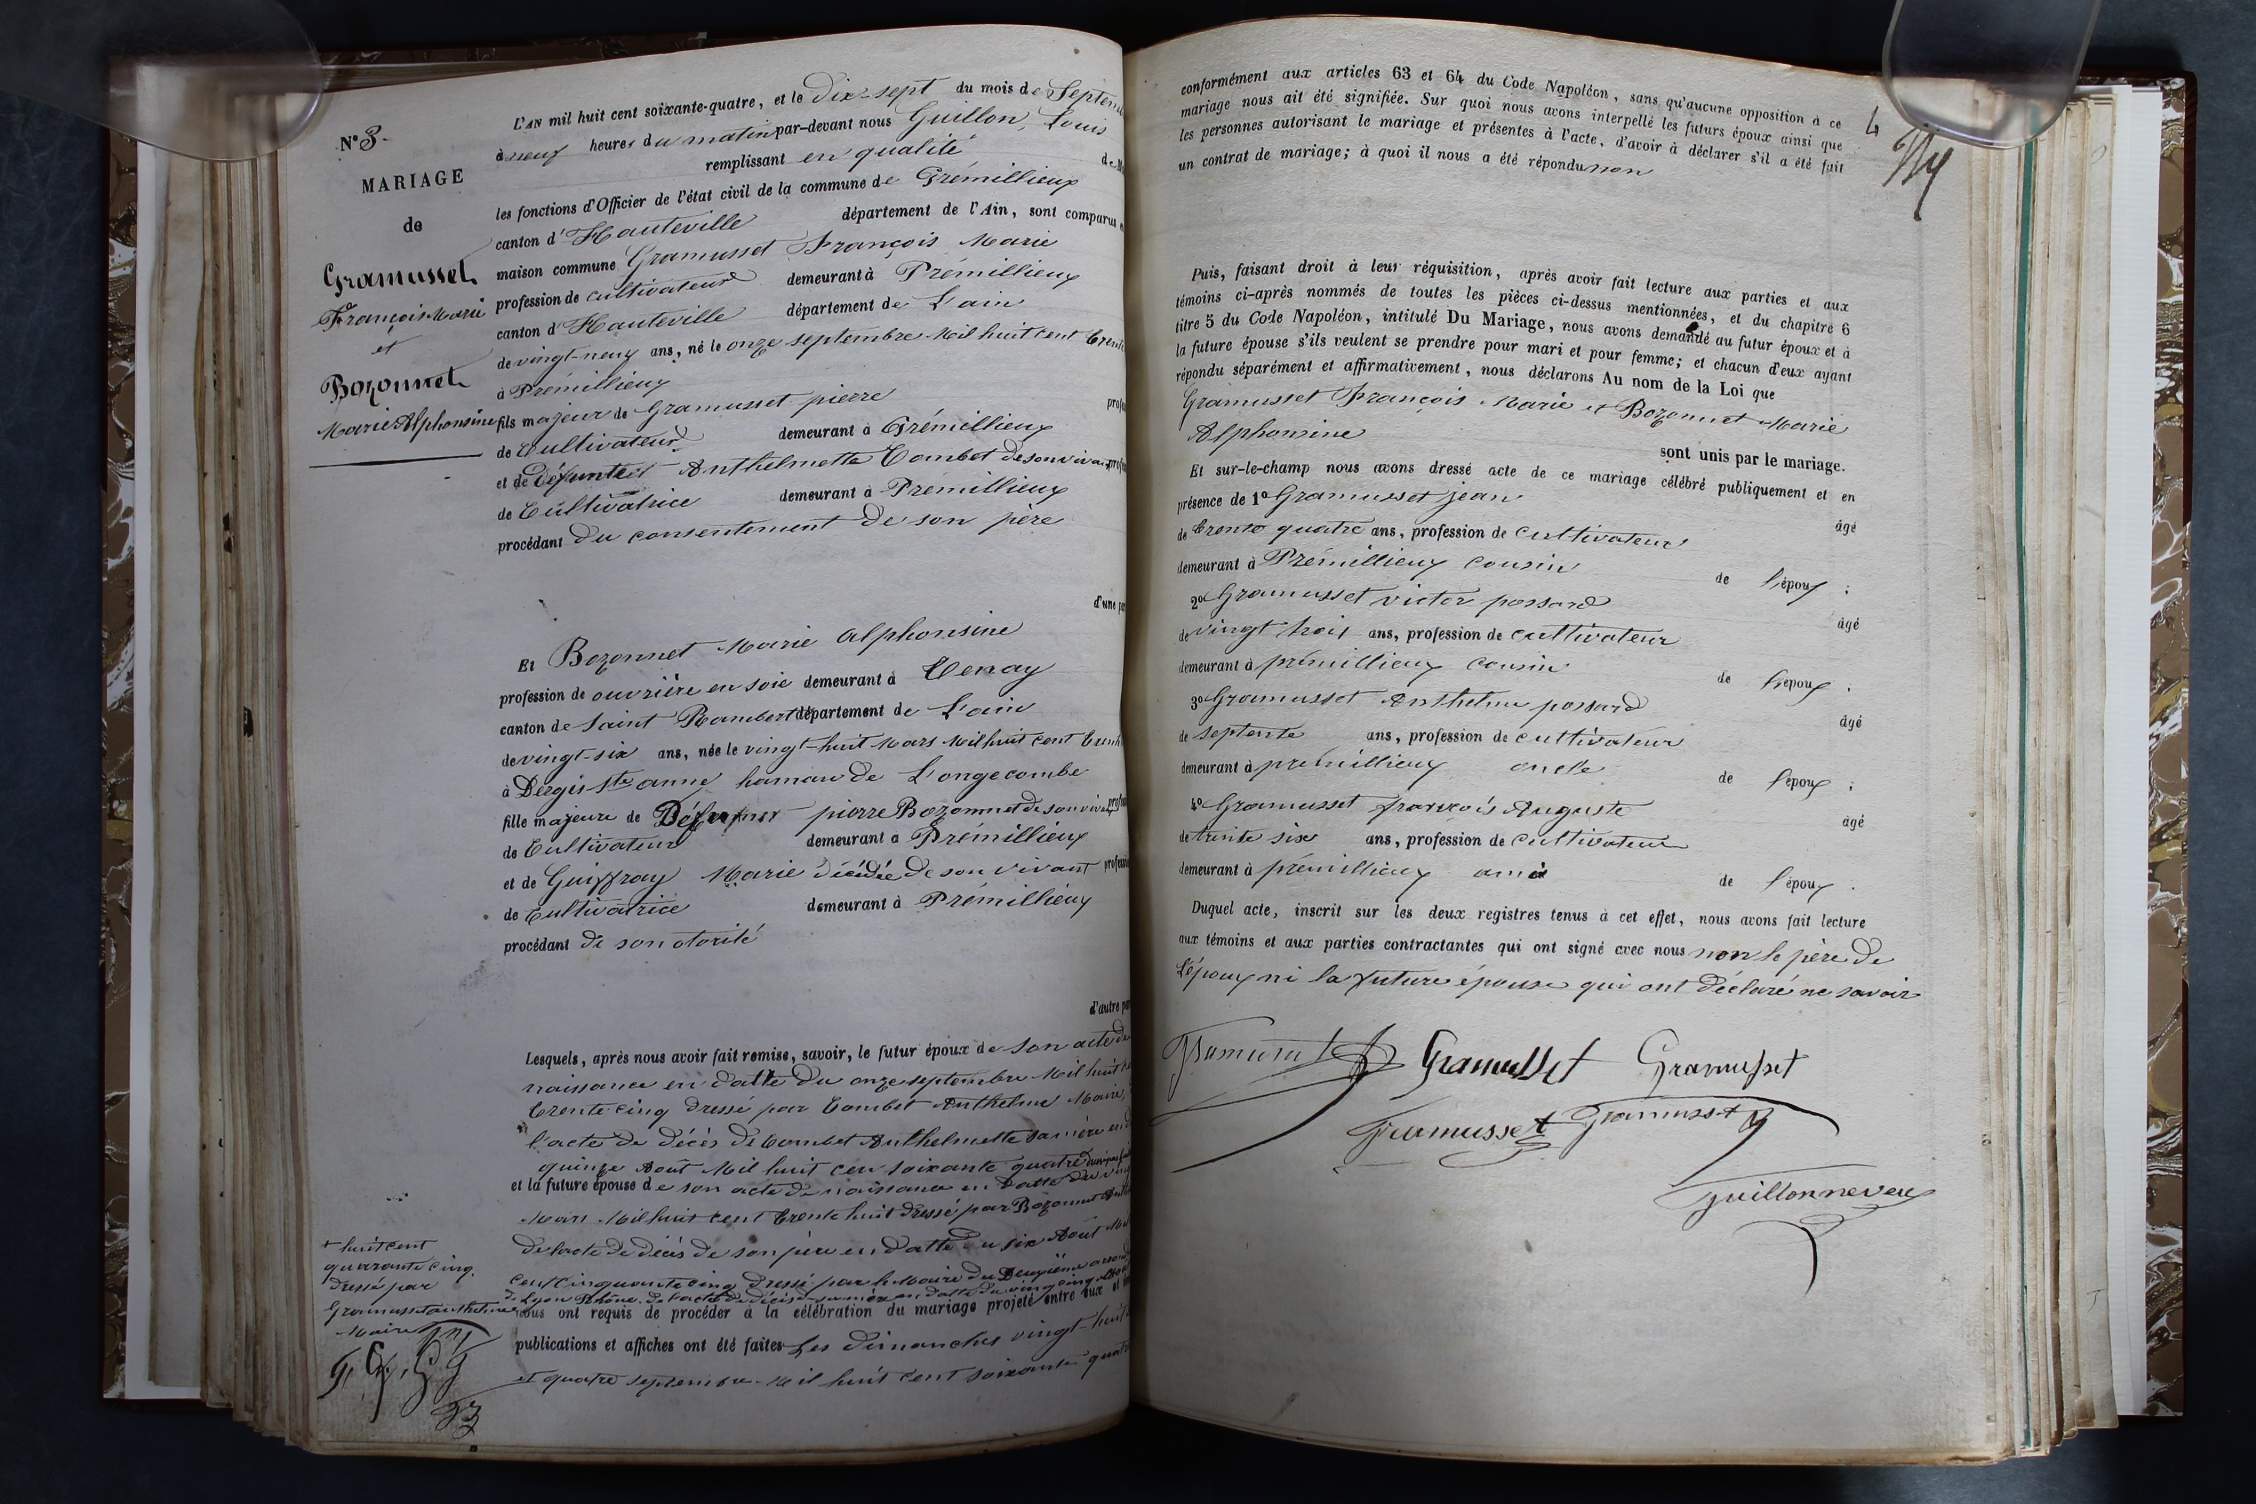 N° 3.
MARIAGE
de
Gramusset
François Marie
et
Bozonnet
Marie Alphonsine
L'AN mil huit cent soixante-quatre, et le Dix-sept du mois de Septem
à neuf heures du matin par-devant nous Guillon, Louis
remplissant en qualité de M
les fonctions d'Officier de l'état civil de la commune de Prémillieux
canton d'Hauteville département de l'Ain, sont comparus e
maison commune Gramusset François Marie
profession de cultivateur demeurant à Prémillieux
canton d'Hauteville département de L'ain
de vingt-neuf ans, né le onze septembre Mil huit cent trente
à Prémillieux
fils majeur de Gramusset pierre profe
de Cultivateur demeurant à Prémillieux
et de Défunte Anthelmette Combet de son vivant profe
de Cultivatrice demeurant à Premillieux
procédant du consentement de son père
d'une par
Et Bozonnet Marie Alphonsine
profession de ouvrière en soie demeurant à Tenay
canton de Saint Rambert département de L'ain
de vingt-six ans, née le vingt-huit Mars Mil huit cent trente
à Dergis Ste anne hamau de Longecombe
fille majeure de Défunt pierre Bozonnet de son vivant profes
de Cultivateur demeurant à Prémillieux
et de Guiffray Marie décédée de son vivant profession
de Cultivatrice demeurant à Prémillieux
procédant de son otorité
d'autre par
Lesquels, après nous avoir fait remise, savoir, le futur époux de son acte de
naissance en datte du onze septembre Mil huit ce
trente-cinq dressé par Combet Anthelme Maire,
l'acte de décès de Combet Anthelmette sa mère en d
quinze Août Mil huit cen soixante quatre
et la future épouse de son acte de naissance en datte du vin
Mars Mil huit cent trente huit dressé par Bozonnet
De l'acte de décès de son père en datte du six Août Mil
cent cinquante cinq dressé par le Maire du Deuxième arron
de Lyon Rhône. De l'acte de décès de sa mère en datte du vingt cinq
nous ont requis de procéder à la célébration du mariage projeté entre eux et
publications et affiches ont été faites Les dimanches vingt-huit
et quatre septembre Mil huit cent soixante quatre
+ huit cent
quarante cinq.
dressé par
Gramusset anthelme
Maire
conformément aux articles 63 et 64 du Code Napoléon, sans qu'aucune opposition à ce
mariage nous ait été signifiée. Sur quoi nous avons interpellé les futurs époux ainsi que
les personnes autorisant le mariage et présentes à l'acte, d'avoir à déclarer s'il a été fait
un contrat de mariage; à quoi il nous a été répondu non
4
Puis, faisant droit à leur réquisition, après avoir fait lecture aux parties et aux
témoins ci-après nommés de toutes les pièces ci-dessus mentionnées, et du chapitre 6
titre 5 du Code Napoléon, intitulé Du Mariage, nous avons demandé au futur époux et à
la future épouse s'ils veulent se prendre pour mari et pour femme; et chacun d'eux ayant
répondu séparément et affirmativement, nous déclarons Au nom de la Loi que
Gramusset François Marie et Bozonnet Marie
Alphonsine
sont unis par le mariage.
Et sur-le-champ nous avons dressé acte de ce mariage célébré publiquement et en
présence de 1° Gramusset jean âgé
de trente quatre ans, profession de cultivateur
demeurant à Prémillieux cousin de l'époux ;
2° Gramusset victor possard âgé
de vingt trois ans, profession de cultivateur
demeurant à prémillieux cousin de l'époux ;
3° Gramusset Anthelme possard âgé
de septente ans, profession de cultivateur
demeurant à prémillieux oncle de l'époux ;
4° Gramusset françois Auguste âgé
de trente six ans, profession de cultivateur
demeurant à prémillieux ami de l'époux .
Duquel acte, inscrit sur les deux registres tenus à cet effet, nous avons fait lecture
aux témoins et aux parties contractantes qui ont signé avec nous non le père de
L'époux ni la future épouse qui ont déclaré ne savoir
Gramusset Gramusset Gramusset
Gramusset Gramusset
Guillon neveu